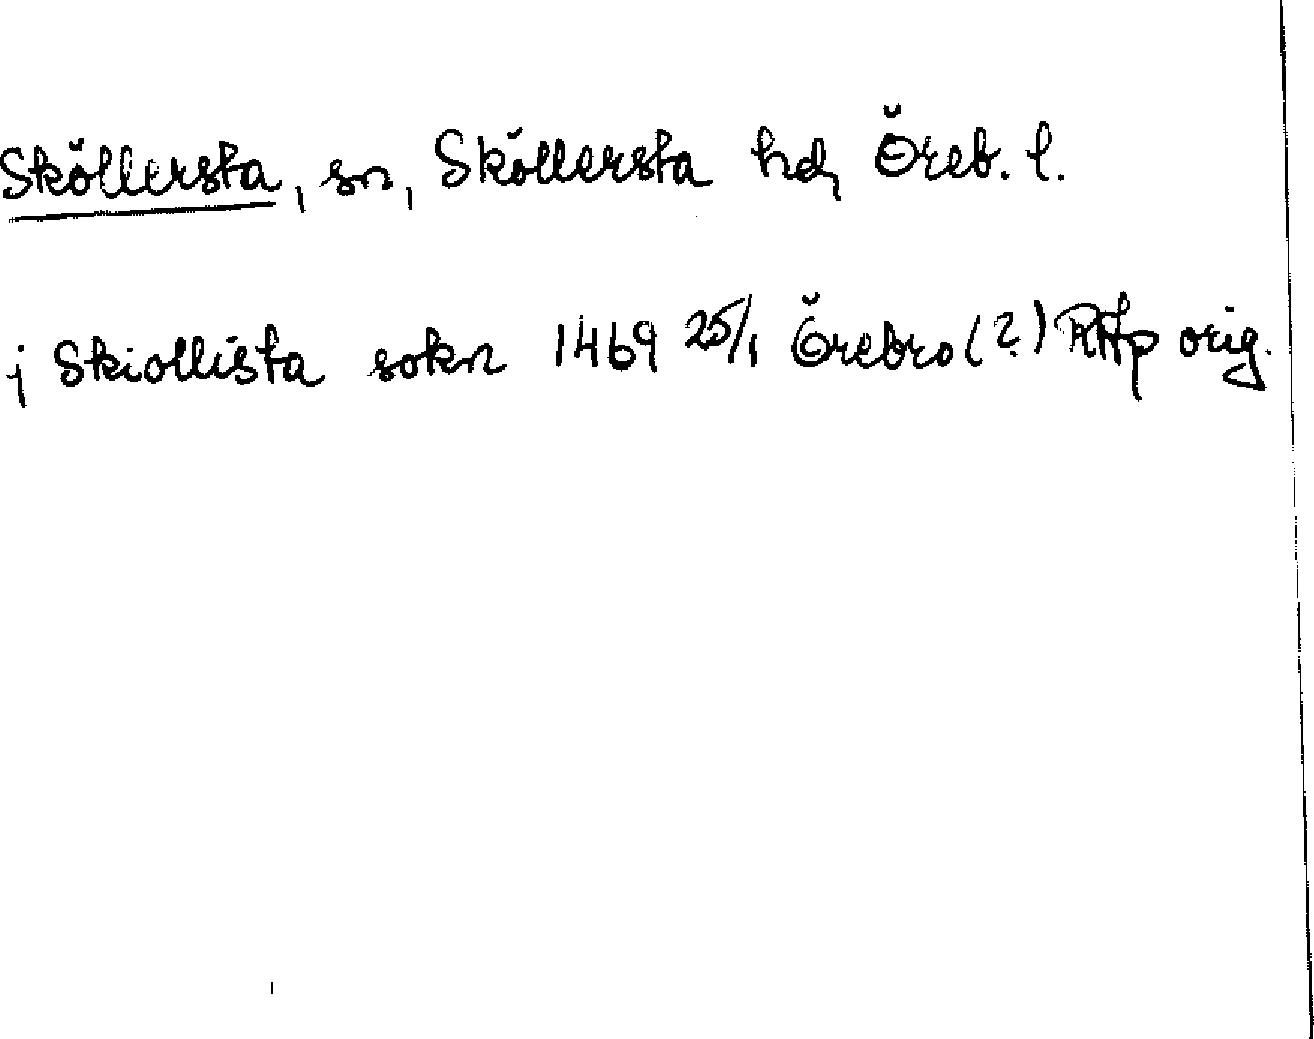 Sköllersta, sn, Sköllersta hd, Öreb. l.
j Skiollista sokn 1469 25/1 Örebro (?) RAp orig.